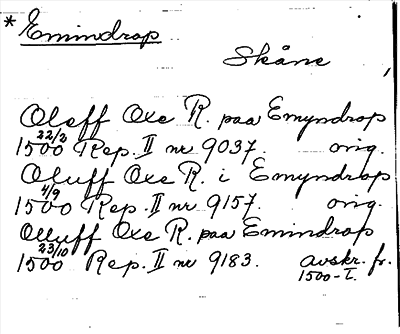 * Emindrop
Skåne
Oleff Oxe R. paa Emyndrop
1500 22/2 Rep. II nr 9037. orig.
Oluff Oxe R. i Emyndrop
1500 4/9 Rep. II nr 9157. orig.
Olluff Oxe R. paa Emindrop
1500 23/10 Rep. II nr 9183. avskr. fr.
1500-t.